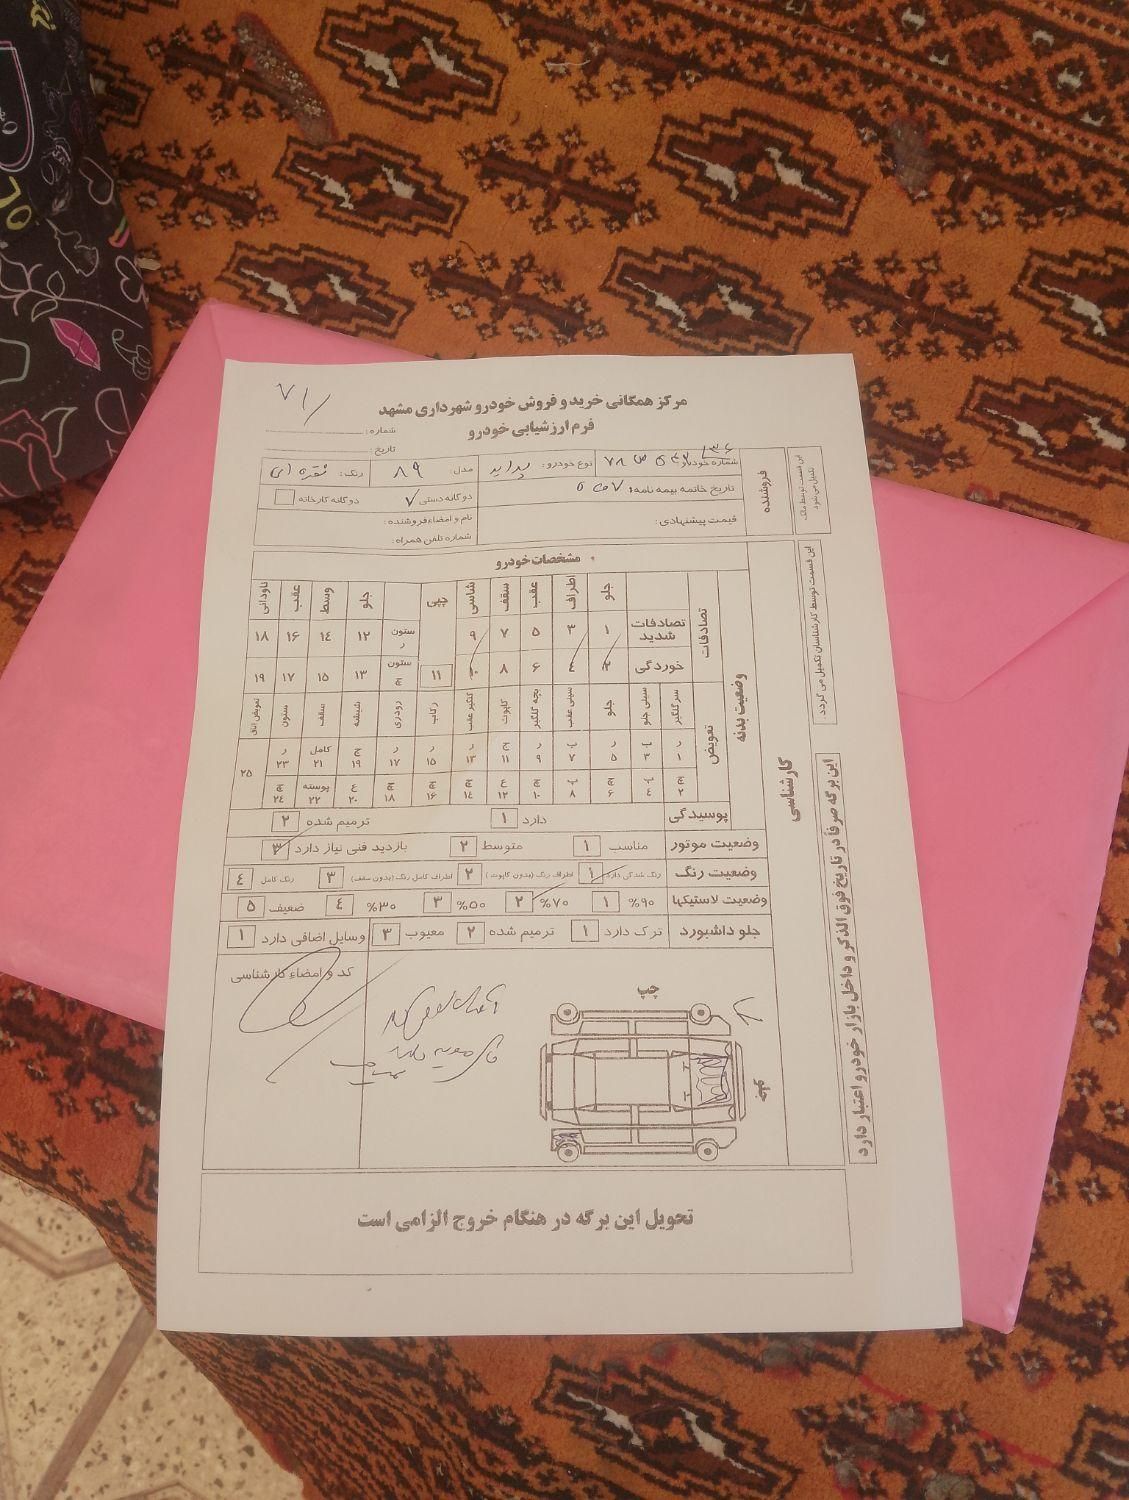 ۷۱/
مرکز همگانی خرید و فروش خودرو شهرداری مشهد
فرم ارزشیابی خودرو
شماره:
تاریخ:
این قسمت توسط مالک تکمیل می شود
فروشنده
شماره خودرو: نوع خودرو: پراید مدل: ۸۹ رنگ: نقره ای
تاریخ خاتمه بیمه نامه: دوگانه دستی دوگانه کارخانه
قیمت پیشنهادی: نام و امضاء فروشنده:
شماره تلفن همراه:
این قسمت توسط کارشناسان تکمیل می گردد
کارشناسی
مشخصات خودرو
وضعیت بدنه
تصادفات
جلو اطراف عقب سقف شاسی پی جلو وسط عقب ناودانی
تصادفات شدید ۱ ۳ ۵ ۷ ۹ ستون ر ۱۲ ۱۴ ۱۶ ۱۸
خوردگی ۲ ۴ ۶ ۸ ۱۰ ۱۱ ستون چ ۱۳ ۱۵ ۱۷ ۱۹
تعویض
سرگلگیر سینی جلو جلو سینی عقب بچه گلگیر کاپوت گلگیر عقب رکاب رودری شیشه سقف ستون تعویض اتاق
ر ۱ ج ۳ ر ۵ ج ۷ ر ۹ ج ۱۱ ر ۱۳ ر ۱۵ ر ۱۷ ج ۱۹ کامل ۲۱ ر ۲۳ ۲۵
چ ۲ ۴ چ ۶ ۸ چ ۱۰ ع ۱۲ چ ۱۴ چ ۱۶ چ ۱۸ ع ۲۰ پوسته ۲۲ چ ۲۴
پوسیدگی دارد ۱ ترمیم شده ۲
وضعیت موتور مناسب ۱ متوسط ۲ بازدید فنی نیاز دارد ۳
وضعیت رنگ رنگ شدگی دارد ۱ اطراف رنگ (بدون کاپوت) ۲ اطراف کامل رنگ (بدون سقف) ۳ رنگ کامل ۴
وضعیت لاستیکها ۹۰% ۱ ۷۰% ۲ ۵۰% ۳ ۳۰% ۴ ضعیف ۵
جلو داشبورد ترک دارد ۱ ترمیم شده ۲ معیوب ۳ وسایل اضافی دارد ۱
کد و امضاء کارشناسی
چپ
این برگه صرفا در تاریخ فوق الذکر و داخل بازار خودرو اعتبار دارد
تحویل این برگه در هنگام خروج الزامی است